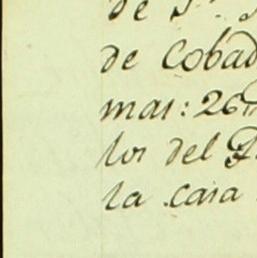 de S.
de Cobad
mas: 26
los del
la casa